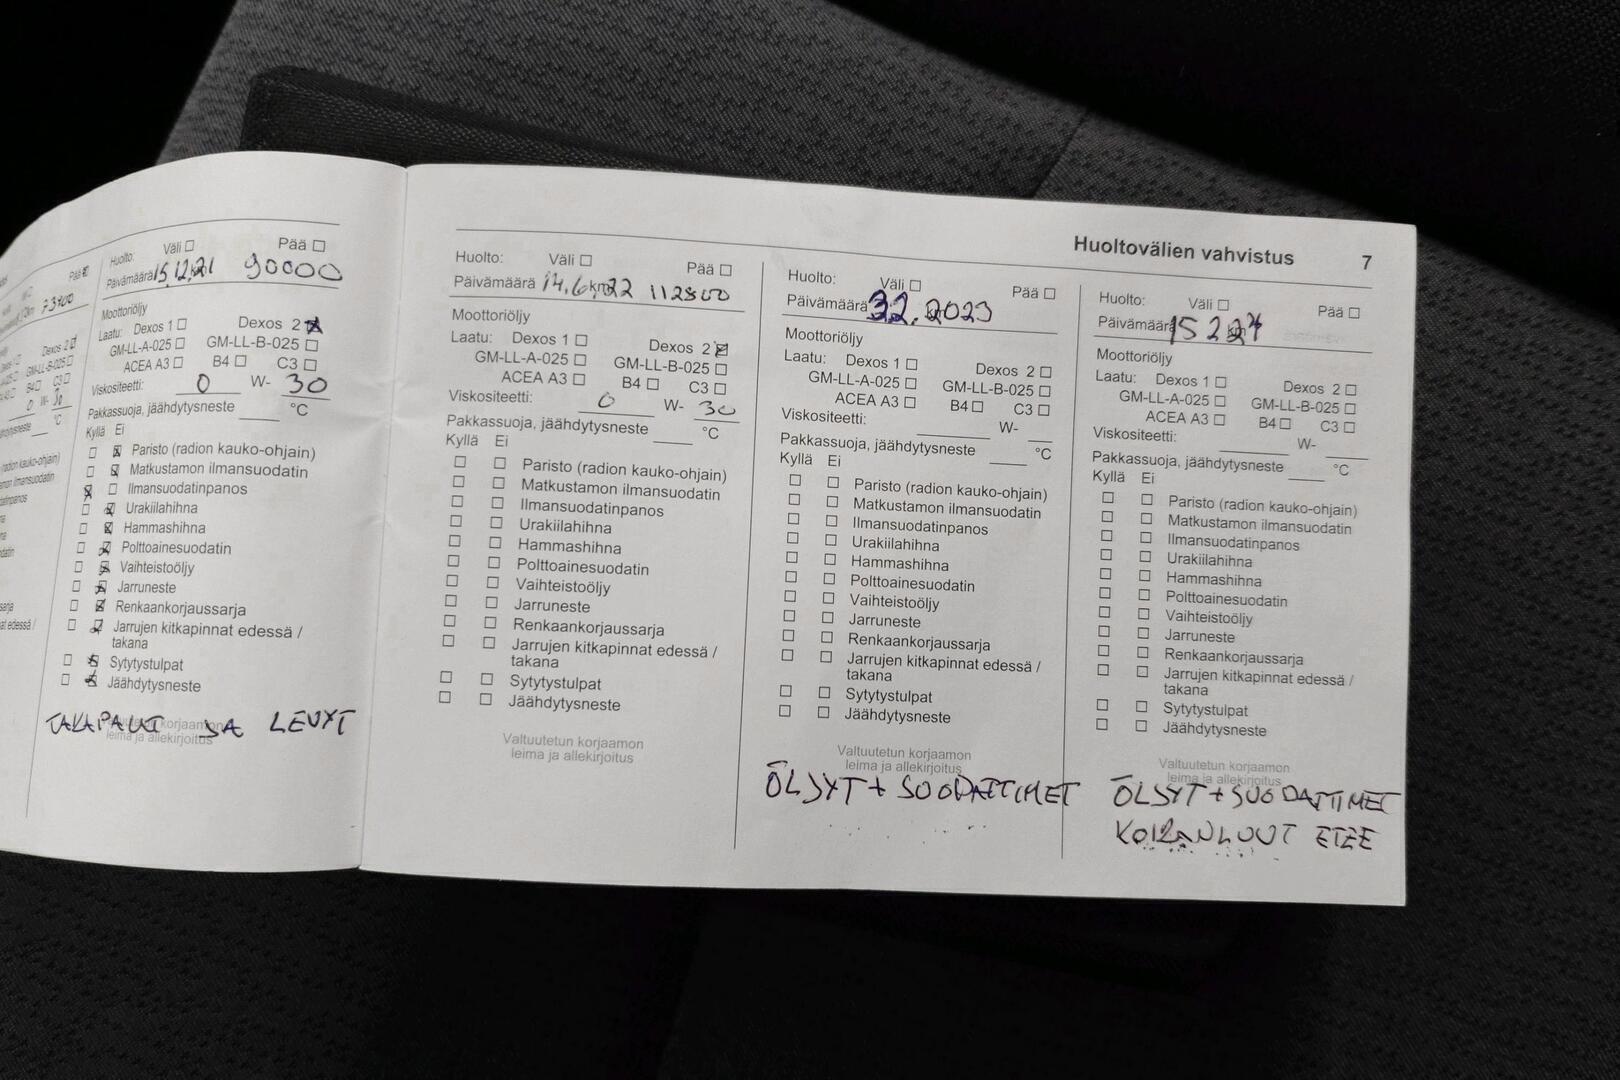 Huoltovälien vahvistus 7
Pää
73400
Dexos 2
GM-LL-B-025
C3
0 W- 30
°C
Huolto: Väli Pää
Päivämäärä 15.12.21 km 90000
Moottoriöljy
Laatu: Dexos 1 Dexos 2
GM-LL-A-025 GM-LL-B-025
ACEA A3 B4 C3
Viskositeetti: 0 W- 30
Pakkassuoja, jäähdytysneste °C
Kyllä Ei
Paristo (radion kauko-ohjain)
Matkustamon ilmansuodatin
Ilmansuodatinpanos
Urakiilahihna
Hammashihna
Polttoainesuodatin
Vaihteistoöljy
Jarruneste
Renkaankorjaussarja
Jarrujen kitkapinnat edessä /
takana
Sytytystulpat
Jäähdytysneste
Valtuutetun korjaamon
leima ja allekirjoitus
TAKAPALAT JA LEVYT
Huolto: Väli Pää
Päivämäärä 14.6.22 km 112800
Moottoriöljy
Laatu: Dexos 1 Dexos 2
GM-LL-A-025 GM-LL-B-025
ACEA A3 B4 C3
Viskositeetti: 0 W- 30
Pakkassuoja, jäähdytysneste °C
Kyllä Ei
Paristo (radion kauko-ohjain)
Matkustamon ilmansuodatin
Ilmansuodatinpanos
Urakiilahihna
Hammashihna
Polttoainesuodatin
Vaihteistoöljy
Jarruneste
Renkaankorjaussarja
Jarrujen kitkapinnat edessä /
takana
Sytytystulpat
Jäähdytysneste
Valtuutetun korjaamon
leima ja allekirjoitus
Huolto: Väli Pää
Päivämäärä 3.2.2023 km
Moottoriöljy
Laatu: Dexos 1 Dexos 2
GM-LL-A-025 GM-LL-B-025
ACEA A3 B4 C3
Viskositeetti: W-
Pakkassuoja, jäähdytysneste °C
Kyllä Ei
Paristo (radion kauko-ohjain)
Matkustamon ilmansuodatin
Ilmansuodatinpanos
Urakiilahihna
Hammashihna
Polttoainesuodatin
Vaihteistoöljy
Jarruneste
Renkaankorjaussarja
Jarrujen kitkapinnat edessä /
takana
Sytytystulpat
Jäähdytysneste
Valtuutetun korjaamon
leima ja allekirjoitus
ÖLJYT + SUODATTIMET
Huolto: Väli Pää
Päivämäärä 15 2 24 km
Moottoriöljy
Laatu: Dexos 1 Dexos 2
GM-LL-A-025 GM-LL-B-025
ACEA A3 B4 C3
Viskositeetti: W-
Pakkassuoja, jäähdytysneste °C
Kyllä Ei
Paristo (radion kauko-ohjain)
Matkustamon ilmansuodatin
Ilmansuodatinpanos
Urakiilahihna
Hammashihna
Polttoainesuodatin
Vaihteistoöljy
Jarruneste
Renkaankorjaussarja
Jarrujen kitkapinnat edessä /
takana
Sytytystulpat
Jäähdytysneste
Valtuutetun korjaamon
leima ja allekirjoitus
ÖLJYT + SUODATTIMET
KOIRANLUUT ETEE